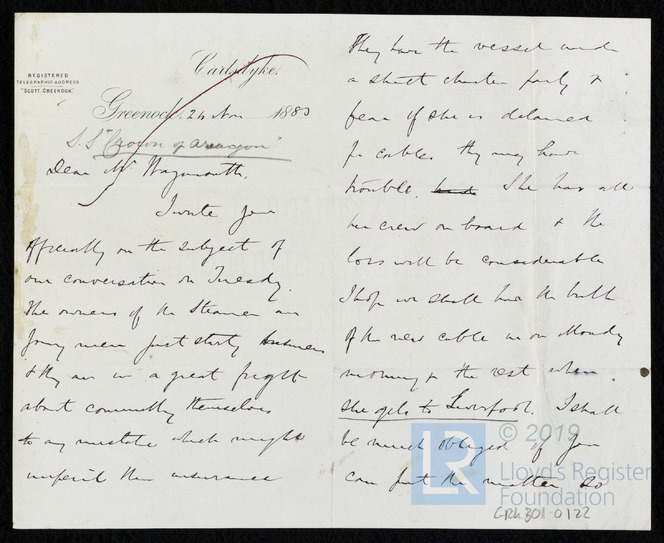 REGISTERED
TELEGRAPHIC ADDRESS
"SCOTT, GREENOCK."
Carlsdyke,
Greenock, 24 Nov 1885
S.S. "Crown of Aragon"
Dear Mr Waymouth.
I wrote you
officially on the subject of
our conversation on Tuesday.
The owners of the Steamer are
young men just starting business
& they are in a great fright
about committing themselves
to any mistake which might
imperil their insurance
They have the vessel under
a strict charter party &
fear if she is detained
for cables they may have
trouble. She has all
her crew on board & the
loss will be considerable
I hope we shall have the bulk
of the new cable in on Monday
morning & the rest when
she gets to Liverpool. I shall
be much obliged if you
can put the matter so
© 2019
LR
Lloyd's Register
Foundation
CRK301-0122